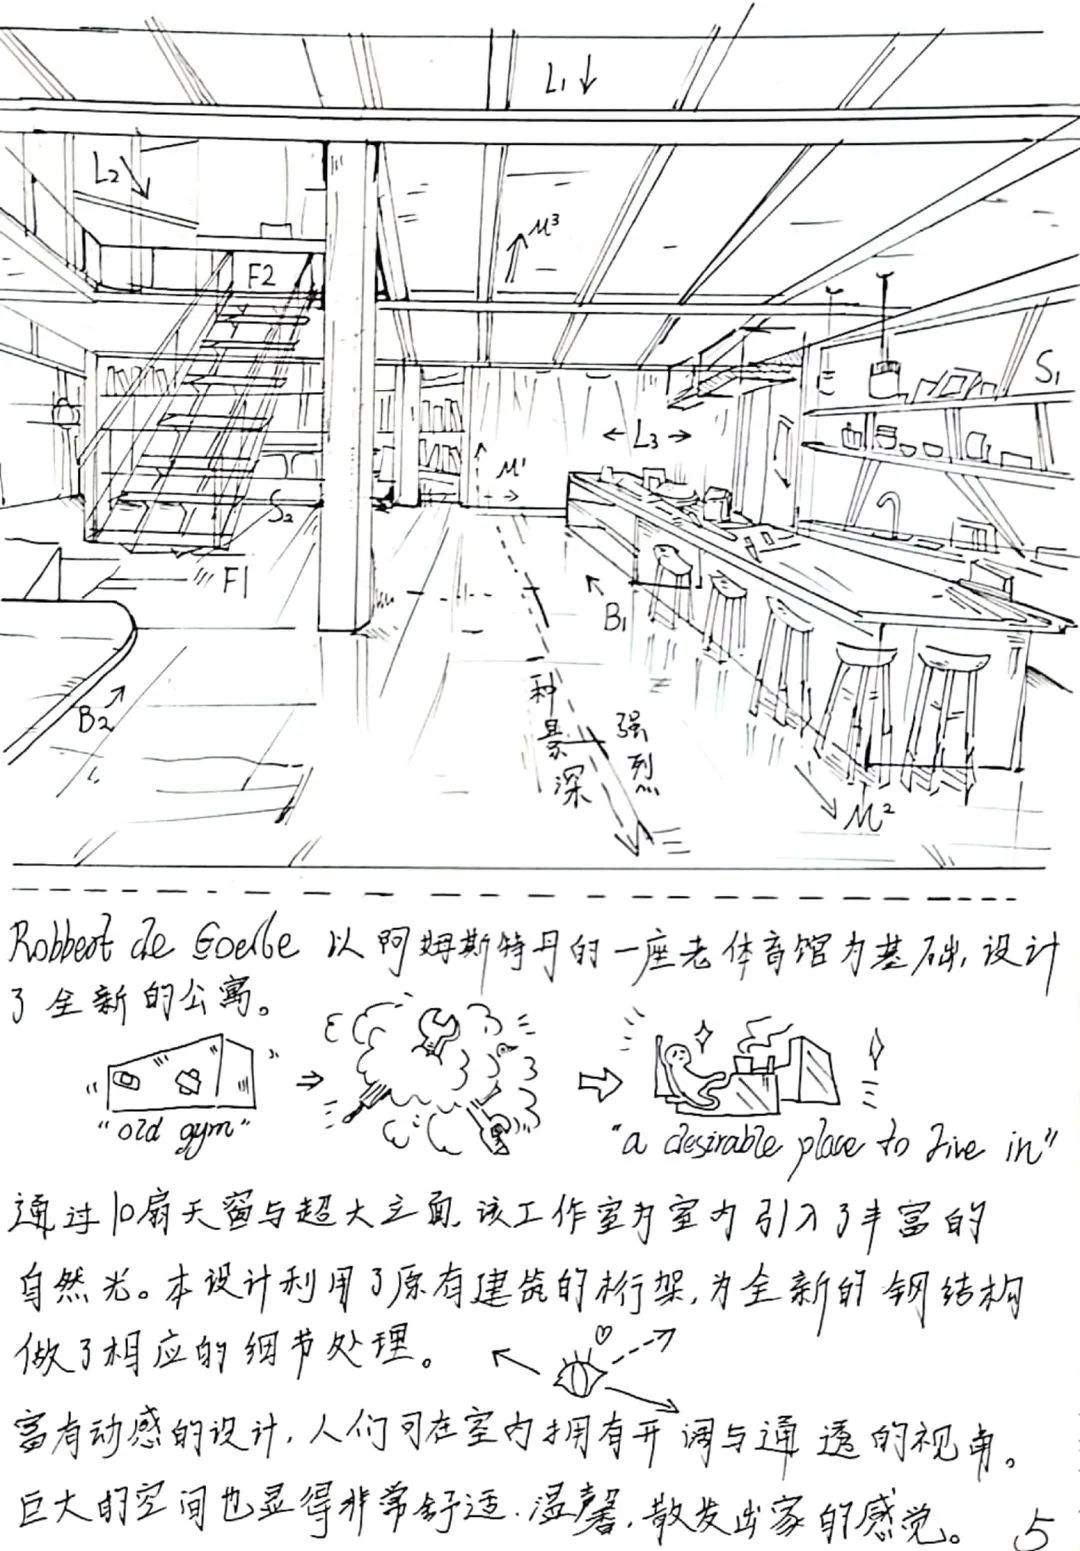 L1
L2
M3
F2
S1
L3
M1
S2
F1
B1
B2
一种景深
强烈
M2
Robbert de Goerbe 以阿姆斯特丹的一座老体育馆为基础,设计
了全新的公寓。
"old gym"
"a desirable place to live in"
通过10扇天窗与超大立面,该工作室为室内引入了丰富的
自然光。本设计利用了原有建筑的桁架,为全新的钢结构
做了相应的细节处理。
富有动感的设计,人们可在室内拥有开阔与通透的视角。
巨大的空间也显得非常舒适.温馨,散发出家的感觉。
5